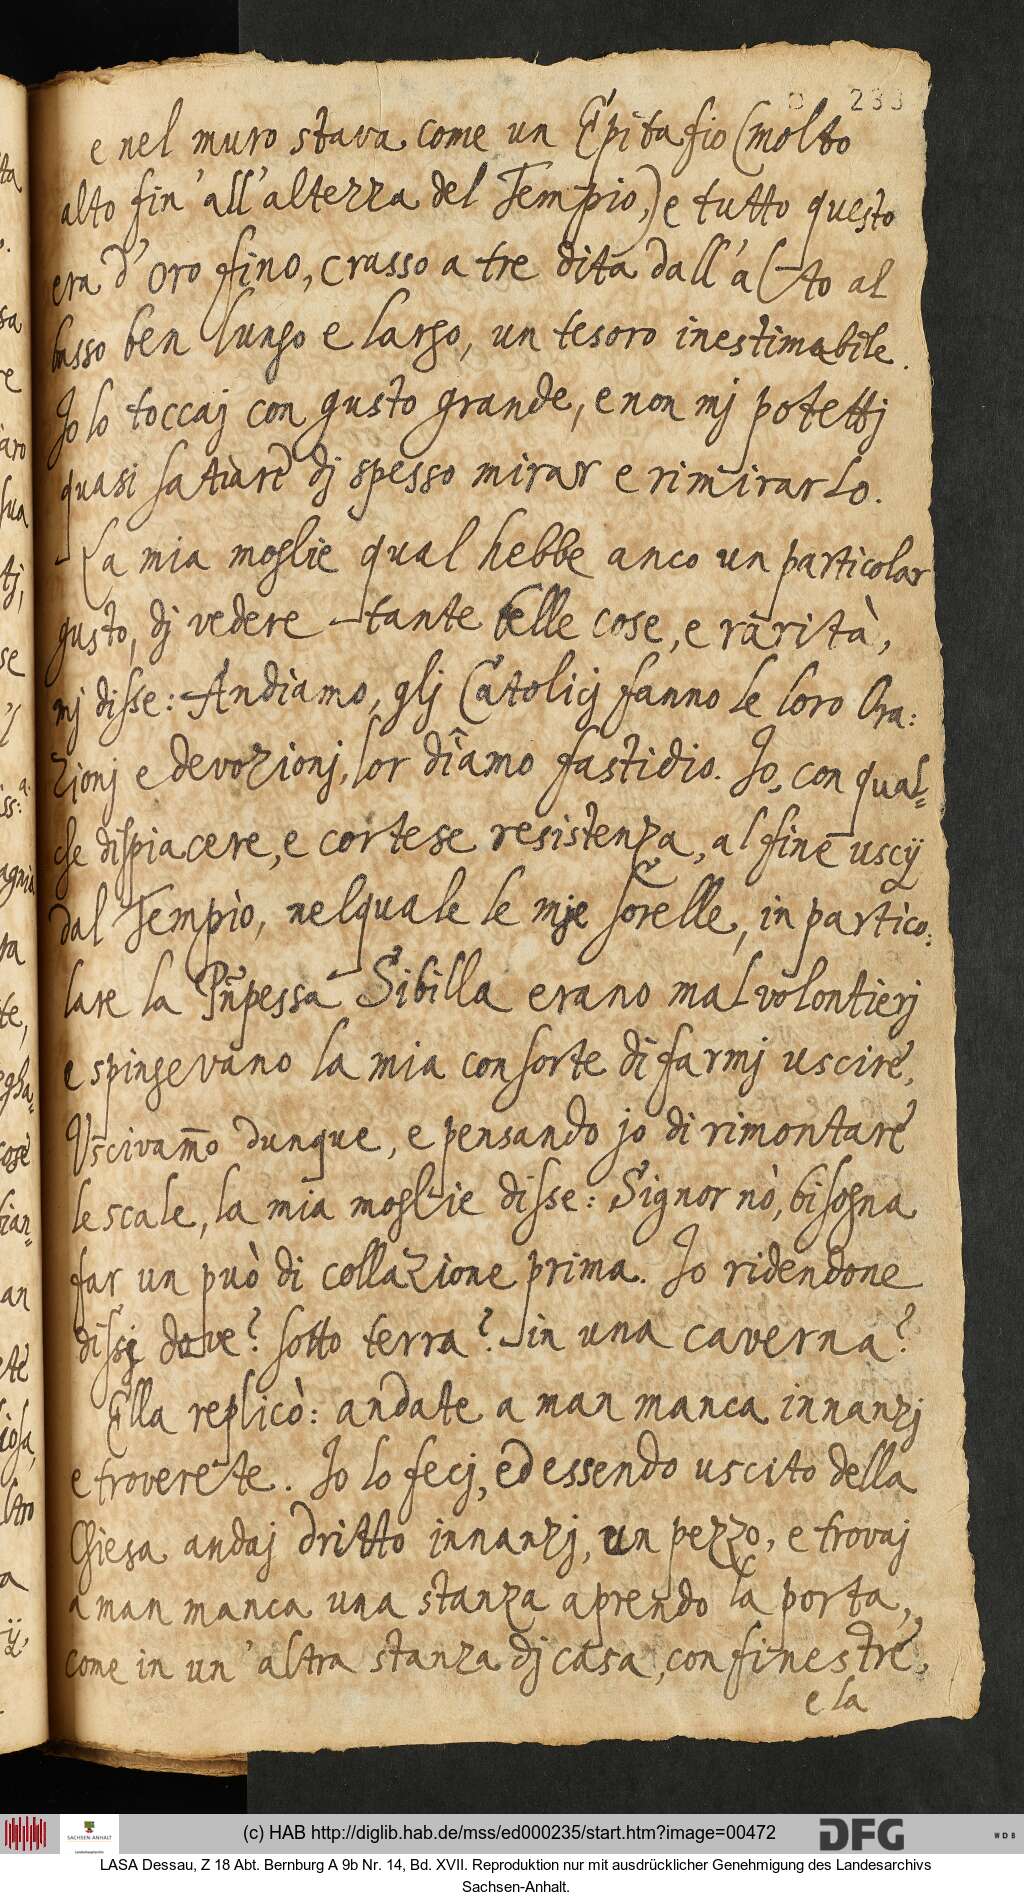 233
e nel muro stava come un Epitafio (molto
alto fin' all' altezza del Tempio,) e tutto questo
era d' oro fino, crasso a tre dita dall' alto al
basso ben lungo e largo, un tesoro inestimabile.
Jo lo toccaj con gusto grande, e non mj potettj
quasi satiare dj spesso mirar e rimirarlo.
La mia moglie qual hebbe anco un particolar
gusto, dj vedere tante belle cose, e rarità,
mj disse: Andiamo, glj Catolicj fanno le loro Ora:
zionj e devozionj, lor diamo fastidio. Jo, con qual=
che dispiacere, e cortese resistenza, al fine uscÿ
dal Tempio, nelquale le mje sorelle, in partico:
lare la Pñpessa Sibilla erano mal volontierj
e spingevano la mia consorte di farmj uscire,
Uscivam̄o dunque, e pensando jo di rimontare
le scale, la mia moglie disse: Signor nò, bisogna
far un può di collazione prima. Jo ridendone
dissj dove? sotto terra? in una caverna?
Ella replicò: andate a man manca innanzj
e troverete. Jo lo fecj, ed essendo uscito della
Chiesa andaj dritto innanzj, un pezzo, e trovaj
a man manca una stanza aprendo la porta,
come in un' altra stanza dj casa, con finestre,
e la
(c) HAB http://diglib.hab.de/mss/ed000235/start.htm?image=00472
SACHSEN-ANHALT
DFG
WDB
LASA Dessau, Z 18 Abt. Bernburg A 9b Nr. 14, Bd. XVII. Reproduktion nur mit ausdrücklicher Genehmigung des Landesarchivs
Sachsen-Anhalt.